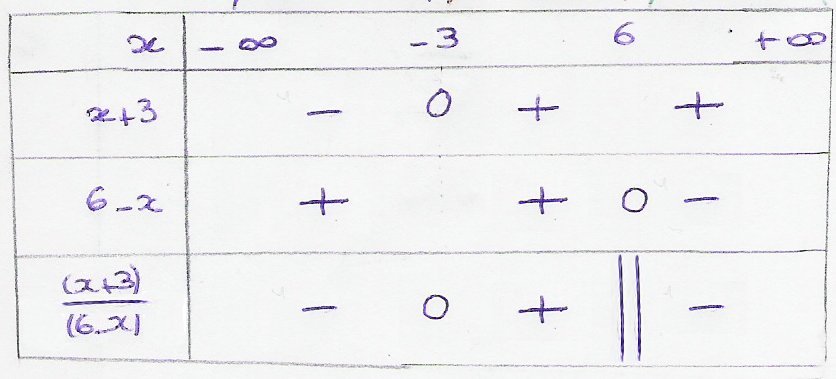 x -∞ -3 6 +∞
x+3 - 0 + +
6-x + + 0 -
(x+3)/(6-x) - 0 + || -